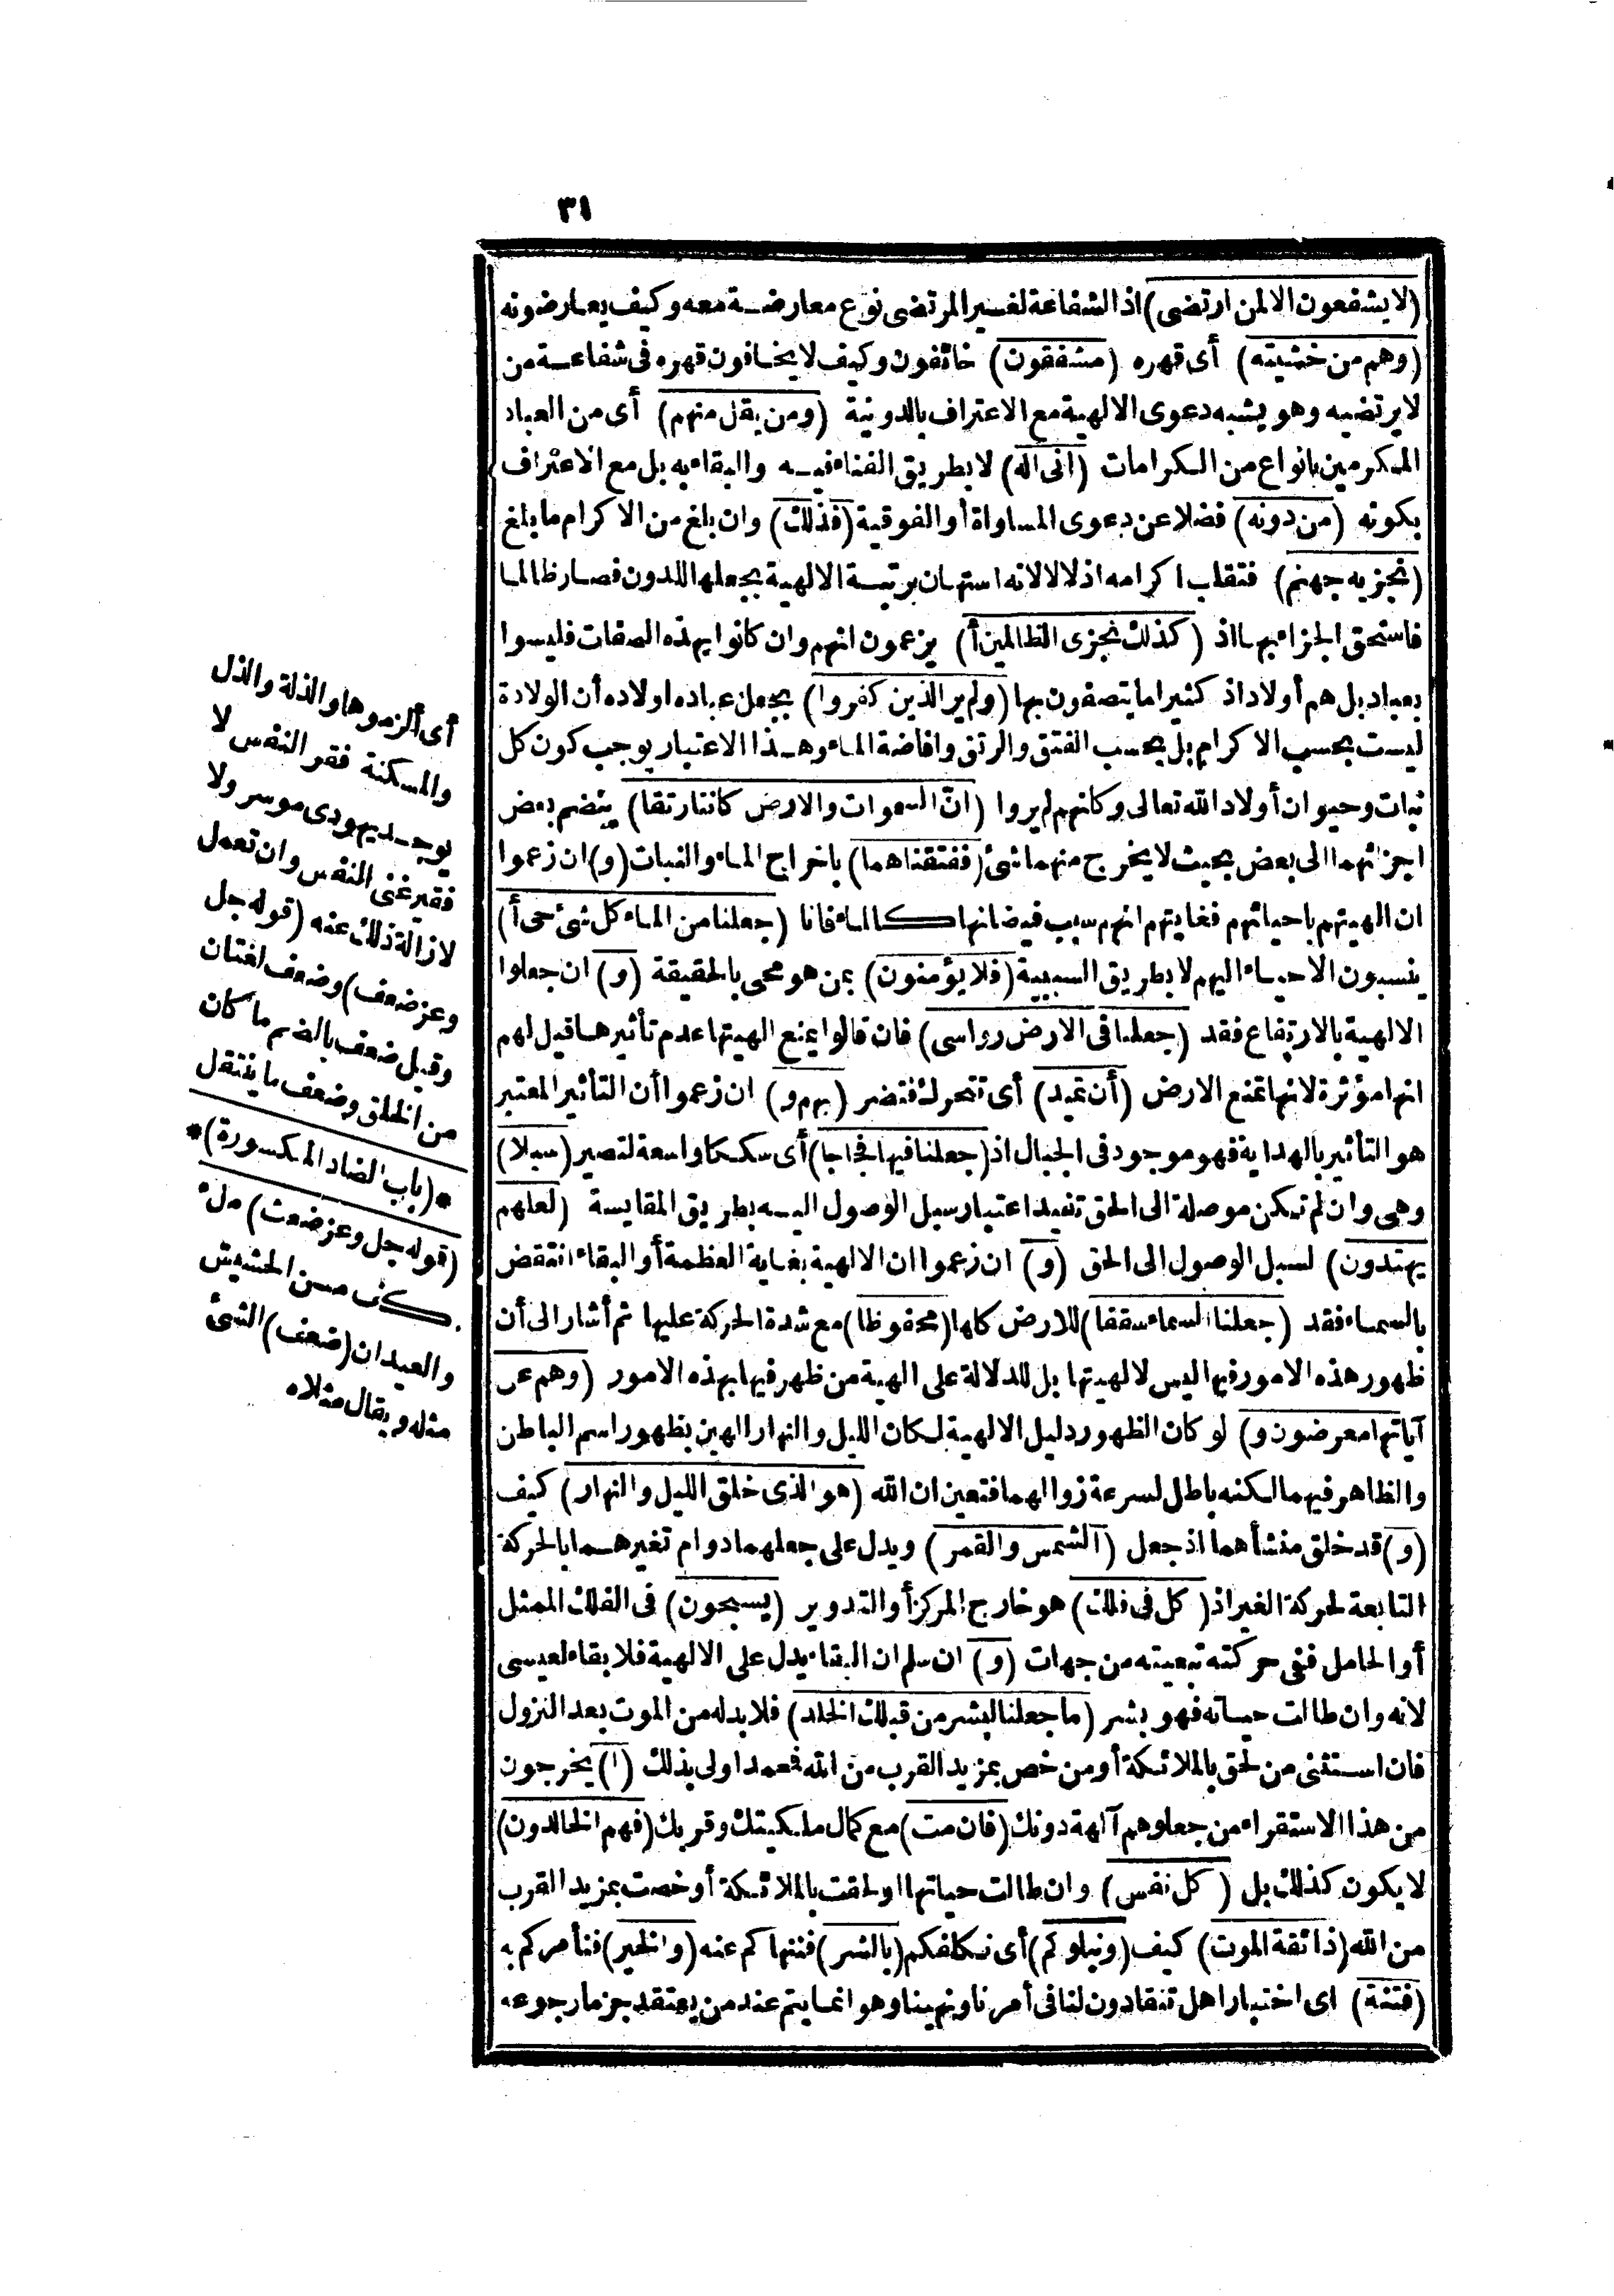 ٣١
(لا يشفعون الا لمن ارتضى) اذ الشفاعة لغير المرتضى نوع معارضة معه وكيف يعارضونه
(وهم من خشيته) أى قهره (مشفقون) خائفون وكيف لا يخافون قهره فى شفاعة من
لا يرتضيه وهو يشبه دعوى الالهية مع الاعتراف بالدونية (ومن يقل منهم) أى من العباد
المكرمين بانواع من الكرامات (انى اله) لا بطريق الفناء فيه والبقاء به بل مع الاعتراف
بكونه (من دونه) فضلا عن دعوى المساواة أو الفوقية (فذلك) وان بلغ من الاكرام ما بلغ
(نجزيه جهنم) فتقلب اكرامه اذلالا لانه استهان برتبة الالهية بجعلها للدون فصار ظالما
فاستحق الجزاء بها اذ (كذلك نجزى الظالمين أ) يزعمون انهم وان كانوا بهذه الصفات فليسوا
بعباد بل هم أولاد اذ كثيرا ما يتصفون بها (ولم ير الذين كفروا) بجعل عباده اولاده أن الولادة
ليست بحسب الاكرام بل بحسب الفتق والرتق وافاضة الماء وهذا الاعتبار يوجب كون كل
نبات وحيوان أولاد الله تعالى وكانهم لم يروا (انّ السموات والارض كانتا رتقا) ينضم بعض
اجزائهما الى بعض بحيث لا يخرج منهما شئ (ففتقناهما) باخراج الماء والنبات (و) ان زعموا
ان الهيتهم باحيائهم فغايتهم انهم سبب فيضانها كالماء فانا (جعلنا من الماء كل شئ حى أ)
ينسبون الاحياء اليهم لا بطريق السببية (فلا يؤمنون) بمن هو محى بالحقيقة (و) ان جعلوا
الالهية بالارتفاع فقد (جعلنا فى الارض رواسى) فان قالوا يمنع الهيتها عدم تأثيرها قيل لهم
انها مؤثرة لانها تمنع الارض (أن تميد) أى تتحرك فتضر (بهم و) ان زعموا أن التأثير المعتبر
هو التأثير بالهداية فهو موجود فى الجبال اذ (جعلنا فيها فجاجا) أى سككا واسعة لتصير (سبلا)
وهى وان لم تكن موصلة الى الحق تفيد اعتبار سبل الوصول اليه بطريق المقايسة (لعلهم
يهتدون) لسبل الوصول الى الحق (و) ان زعموا ان الالهية بغاية العظمة أو البقاء انتقض
بالسماء فقد (جعلنا السماء سقفا) للارض كلها (محفوظا) مع شدة الحركة عليها ثم أشار الى أن
ظهور هذه الامور فيها ليس لالهيتها بل للدلالة على الهية من ظهر فيها بهذه الامور (وهم عن
آياتها معرضون و) لو كان الظهور دليل الالهية لكان الليل والنهار الهين بظهور اسم الباطن
والظاهر فيهما لكنه باطل لسرعة زوالهما فتعين ان الله (هو الذى خلق الليل والنهار) كيف
(و) قد خلق منشأهما اذ جعل (الشمس والقمر) ويدل على جعلهما دوام تغيرهما بالحركة
التابعة لحركة الغير اذ (كل فى فلك) هو خارج المركز أو التدوير (يسبحون) فى الفلك الممثل
أو الحامل ففى حركته تبعيته من جهات (و) ان سلم ان البقاء يدل على الالهية فلا بقاء لعيسى
لانه وان طالت حياته فهو بشر (ما جعلنا لبشر من قبلك الخلد) فلا بد له من الموت بعد النزول
فان استثنى من لحق بالملائكة أو من خص بمزيد القرب من الله فمحمد اولى بذلك (ا) يخرجون
من هذا الاستقراء من جعلوهم آلهة دونك (فان مت) مع كمال ملكيتك وقربك (فهم الخالدون)
لا يكون كذلك بل (كل نفس) وان طالت حياتها او لحقت بالملائكة أو خصت بمزيد القرب
من الله (ذائقة الموت) كيف (ونبلوكم) أى نكلفكم (بالشر) فننهاكم عنه (والخير) فنأمركم به
(فتنة) اى اختبارا هل تنقادون لنا فى أمرنا ونهينا وهو انما يتم عند من يعتقد جزما رجوعه
أى ألزموها والذلة والذل
والمسكنة فقر النفس لا
يوجد يهودى موسر ولا
فقير غنى النفس وان تعمل
لازالة ذلك عنه (قوله جل
وعز ضعف) وضعف لغتان
وقيل ضعف بالضم ما كان
من الخلق وضعف ما ينتقل
*(باب الضاد المكسورة)*
(قوله جل وعز ضغث) ملء
كف من الحشيش
والعيدان (ضعف) الشئ
مثله ويقال مثلاه